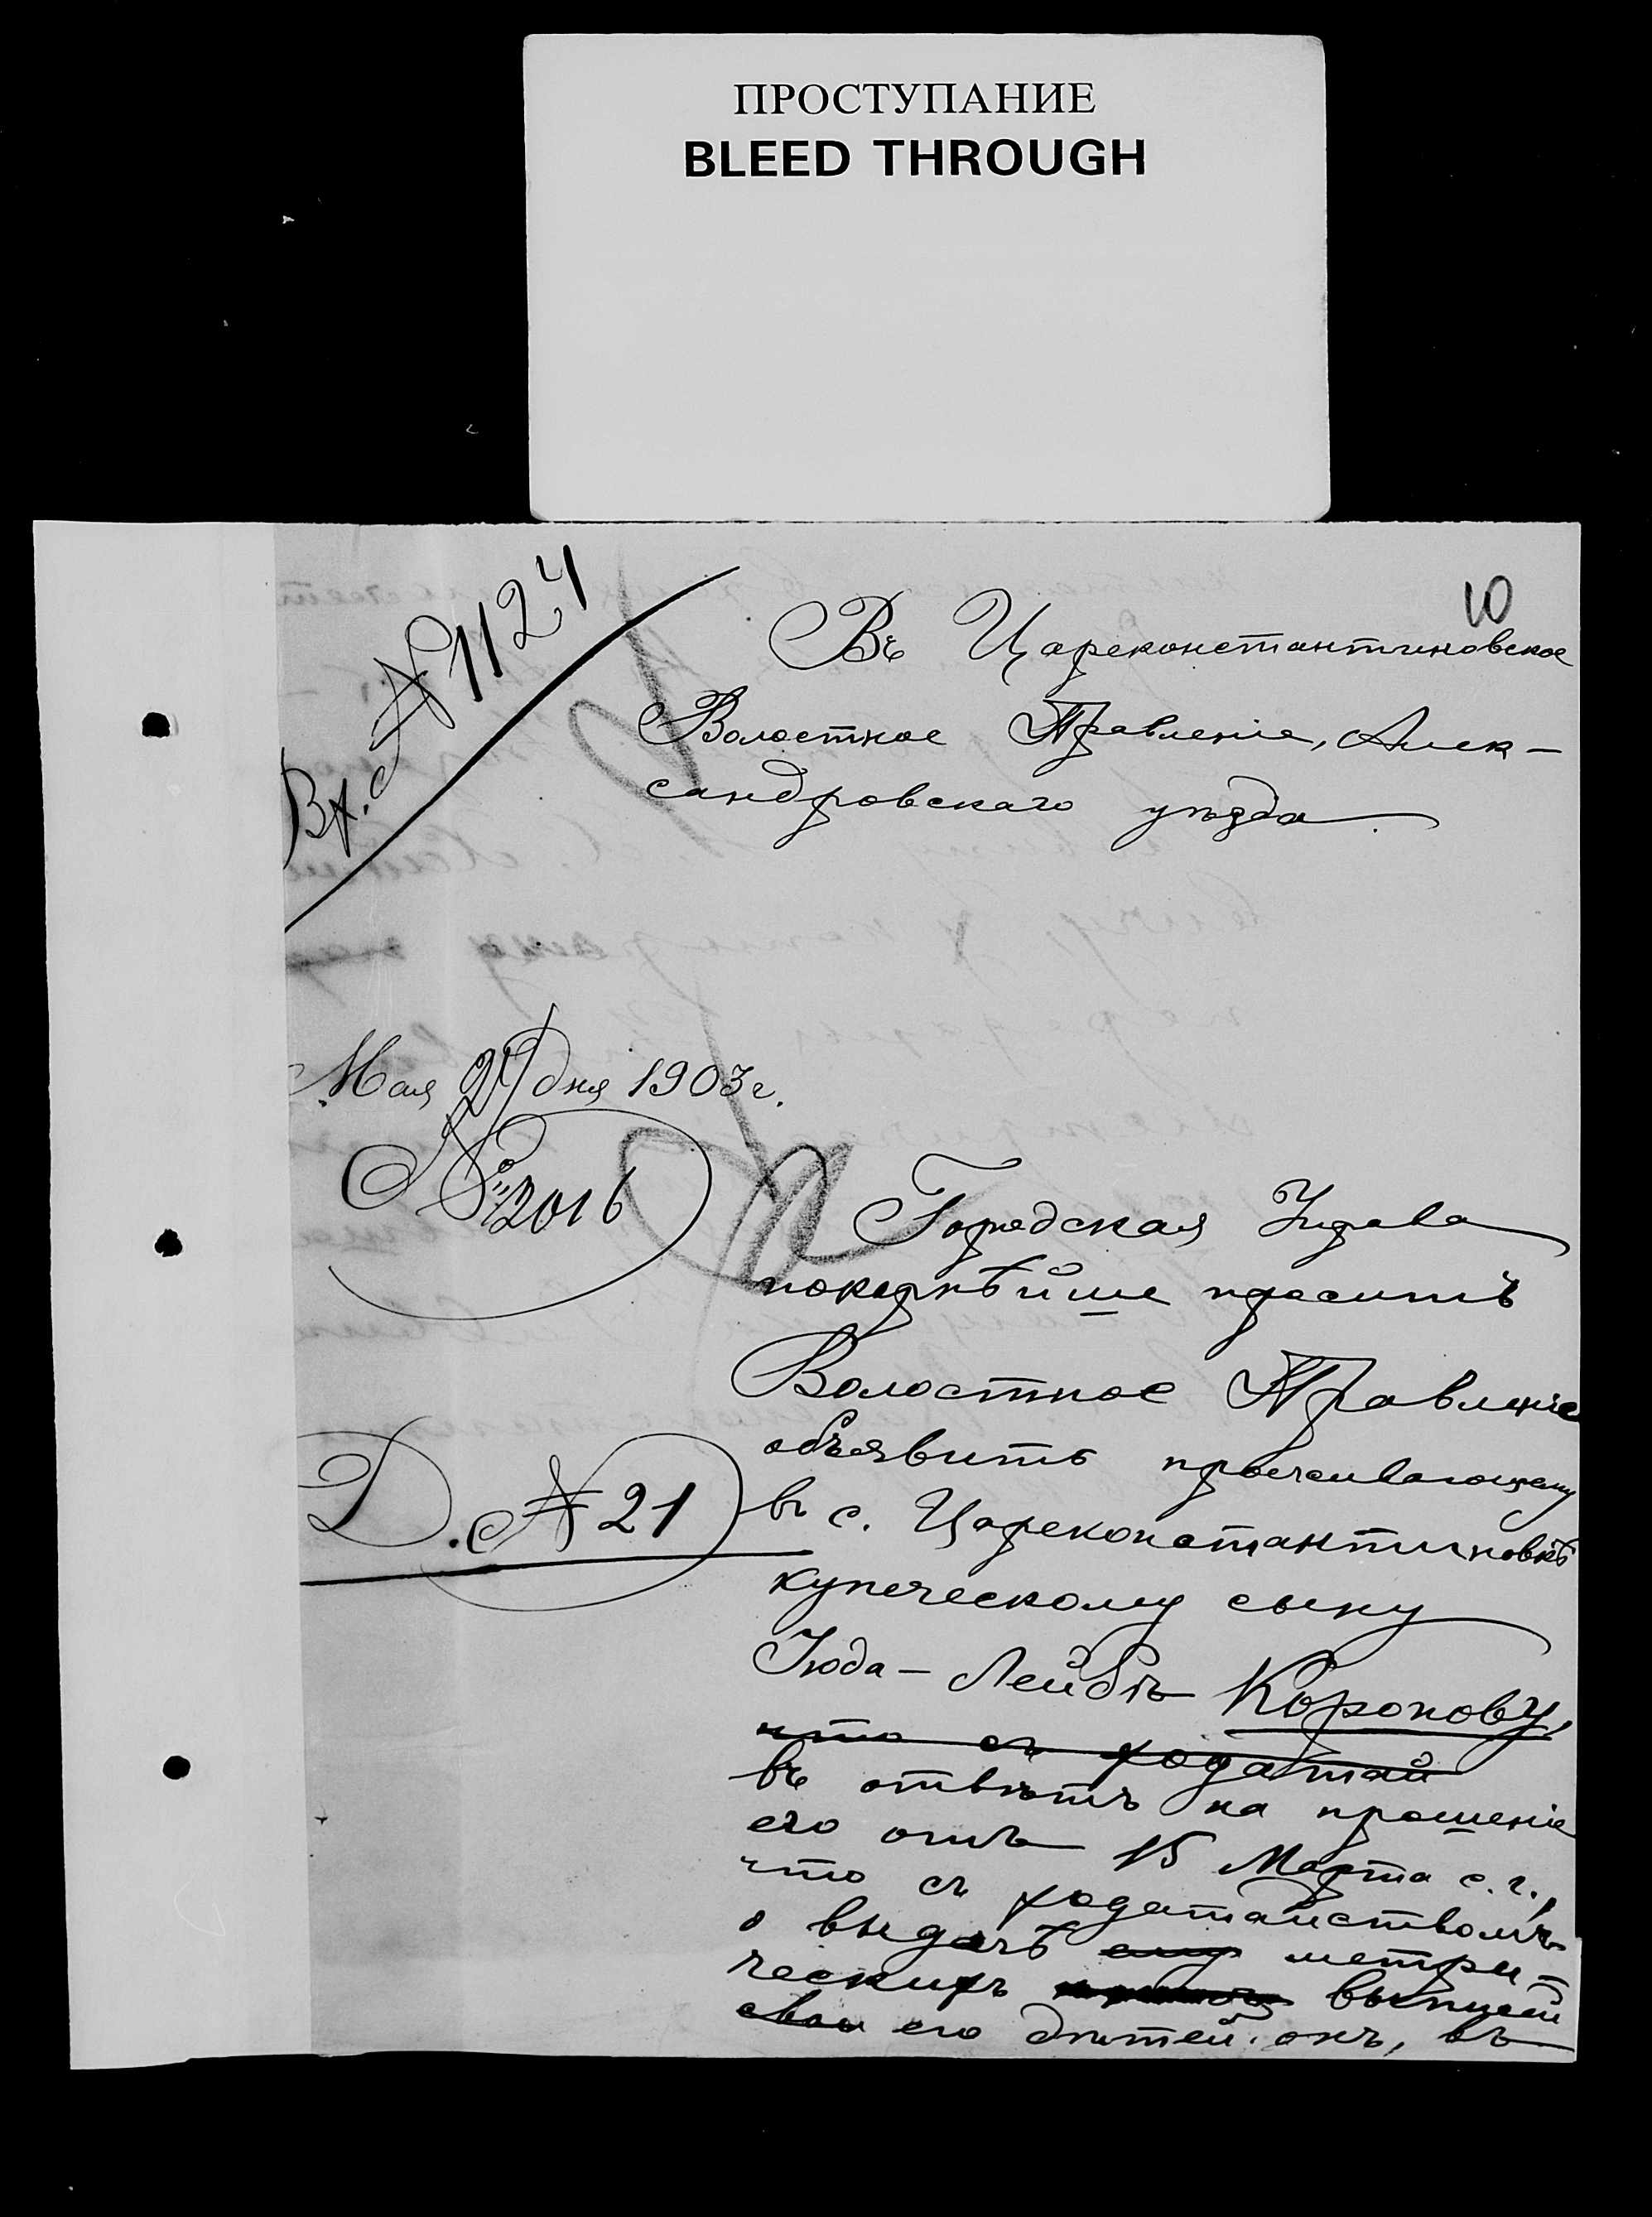 ПРОСТУПАНИЕ
BLEED THROUGH
10
Вх. № 1124
Въ Цареконстантиновское
Волостное Правленіе, Алек-
сандровскаго уѣзда
Мая 27 дня 1903 г.
№ 2016
Д. № 21
Городская Управа
покорнѣйше проситъ
Волостное Правленіе
объявить проживающему
въ с. Цареконстантиновкѣ
купеческому сыну
Іюда-Лейбѣ Коропову,
что съ ходатай
въ отвѣтъ на прошеніе
его отъ 15 Марта с. г.,
что съ ходатайствомъ
о выдачѣ ему метри-
ческихъ выписей
свои его дѣтей онъ, въ